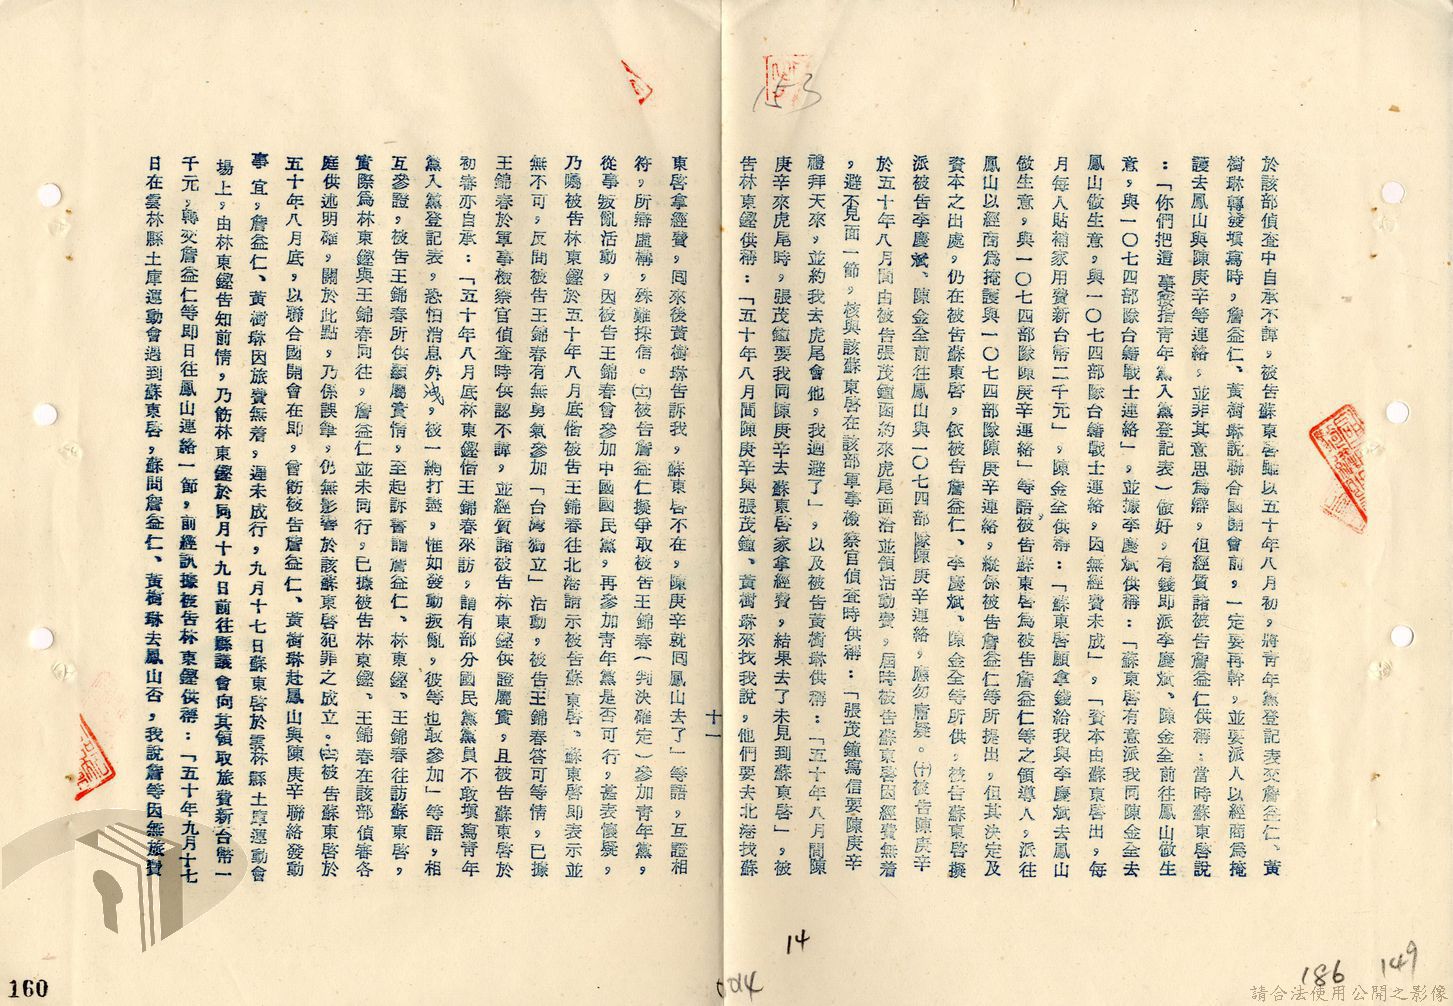 153
於該部偵查中自承不諱，被告蘇東啓雖以五十年八月初，將青年黨登記表交詹益仁、黃
樹琳轉發填寫時，詹益仁、黃樹琳說聯合國開會前，一定要再幹，並要派人以經商為掩
護去鳳山與陳庚辛等連絡，並非其意思為辯，但經質諸被告詹益仁供稱：當時蘇東啓說
：「你們把這事（係指青年黨入黨登記表）做好，有錢即派李慶斌、陳金全前往鳳山做生
意，與一〇七四部隊台籍戰士連絡」，並據李慶斌供稱：「蘇東啓有意派我同陳金全去
鳳山做生意，與一〇七四部隊台籍戰士連絡，因無經費未成」，「資本由蘇東啓出，每
月每人貼補家用費新台幣二千元」，陳金全供稱：「蘇東啓願拿錢給我與李慶斌去鳳山
做生意，與一〇七四部隊陳庚辛連絡」等語被告蘇東啓為被告詹益仁等之領導人，派往
鳳山以經商為掩護與一〇七四部隊陳庚辛連絡，縱係被告詹益仁等所提出，但其決定及
資本之出處，仍在被告蘇東啓，依被告詹益仁、李慶斌、陳金全等所供，被告蘇東啓擬
派被告李慶斌、陳金全前往鳳山與一〇七四部隊陳庚辛連絡，應勿庸疑。㈩被告陳庚辛
於五十年八月間由被告張茂鐘函約來虎尾面洽並領活動費，屆時被告蘇東啓因經費無着
，避不見面一節，核與該蘇東啓在該部軍事檢察官偵查時供稱：「張茂鐘寫信要陳庚辛
禮拜天來，並約我去虎尾會他，我迴避了」，以及被告黃樹琳供稱：「五十年八月間陳
庚辛來虎尾時，張茂鐘要我同陳庚辛去蘇東啓家拿經費，結果去了未見到蘇東啓」，被
告林東鏗供稱：「五十年八月間陳庚辛與張茂鐘、黃樹琳來找我說，他們要去北港找蘇
十一
東啓拿經費，回來後黃樹琳告訴我，蘇東啓不在，陳庚辛就回鳳山去了」等語，互證相
符，所辯虛構，殊難採信。㈩被告詹益仁擬爭取被告王錦春（判決確定）參加青年黨，
從事叛亂活動，因被告王錦春曾參加中國國民黨，再參加青年黨是否可行，甚表懷疑，
乃囑被告林東鏗於五十年八月底偕被告王錦春往北港請示被告蘇東啓、蘇東啓即表示並
無不可，反問被告王錦春有無勇氣參加「台灣獨立」活動，被告王錦春答可等情，已據
王錦春於軍事檢察官偵查時供認不諱，並經質諸被告林東鏗供證屬實，且被告蘇東啓於
初審亦自承：「五十年八月底林東鏗偕王錦春來訪，謂有部分國民黨黨員不敢填寫青年
黨入黨登記表，恐怕消息外洩，被一網打盡，惟如發動叛亂，彼等也敢參加」等語，相
互參證，被告王錦春所供顯屬實情，至起訴書謂詹益仁、林東鏗、王錦春往訪蘇東啓，
實際為林東鏗與王錦春同往，詹益仁並未同行，已據被告林東鏗、王錦春在該部偵審各
庭供述明確，關於此點，乃係誤筆，仍無影響於該蘇東啓犯罪之成立。㈫被告蘇東啓於
五十年八月底，以聯合國開會在即，曾飭被告詹益仁、黃樹琳赴鳳山與陳庚辛聯絡發動
事宜，詹益仁、黃樹琳因旅費無着，遲未成行，九月十七日蘇東啓於雲林縣土庫運動會
場上，由林東鏗告知前情，乃飭林東鏗於同月十九日前往縣議會向其領取旅費新台幣一
千元，轉交詹益仁等即日往鳳山連絡一節，前經訊據被告林東鏗供稱：「五十年九月十七
日在雲林縣土庫運動會遇到蘇東啓，蘇問詹益仁、黃樹琳去鳳山否，我說詹等因無旅費
14
186
149
160
請合法使用公開之影像